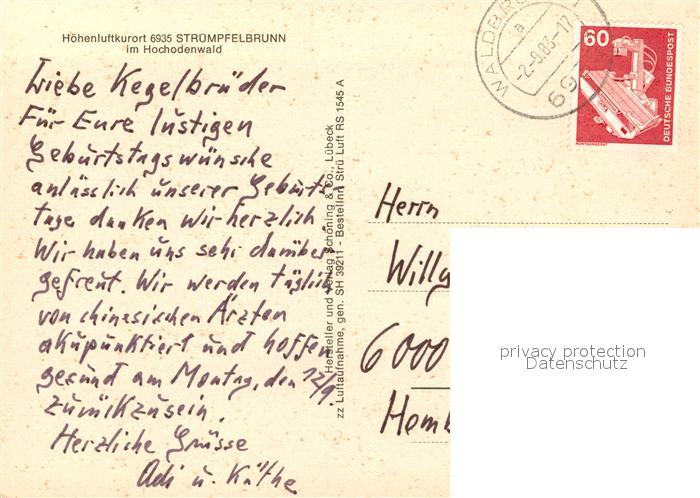 Höhenluftkurort 6935 STRÜMPFELBRUNN
im Hochodenwald
Liebe Kegelbrüder
Für Eure lustigen
Geburtstagswünsche
anlässlich unserer Geburts-
tage danken wir herzlich.
Wir haben uns sehr darüber
gefreut. Wir werden täglich
von chinesischen Ärzten
akupunktiert und hoffen
gesund am Montag, den 12/9.
zurückzusein.
Herzliche Grüsse
Adi u. Käthe
Hersteller und Verlag Schöning & Co., Lübeck
zz Luftaufnahme, gen. SH 39211 - BestellNr Strü Luft RS 1545 A
WALDBR
a
-2.-9.83-17
69
60
DEUTSCHE BUNDESPOST
Herrn
Willy
6000
Homb
privacy protection
Datenschutz